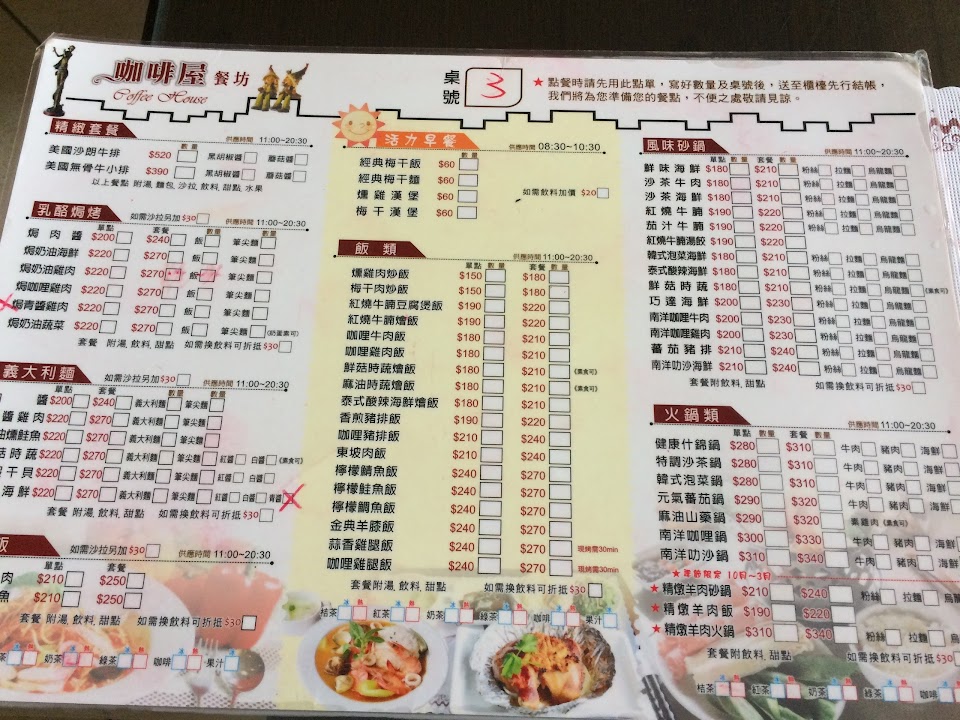 咖啡屋 餐坊
Coffee House
桌號 3
★點餐時請先用此點單，寫好數量及桌號後，送至櫃檯先行結帳，
我們將為您準備您的餐點，不便之處敬請見諒。
精緻套餐 供應時間 11:00~20:30
數量
美國沙朗牛排 $520 黑胡椒醬 蘑菇醬
美國無骨牛小排 $390 黑胡椒醬 蘑菇醬
以上餐點 附湯, 麵包, 沙拉, 飲料, 甜點, 水果
乳酪焗烤 如需沙拉另加$30 供應時間 11:00~20:30
單點 套餐 數量 數量
焗肉醬 $200 $240 飯 筆尖麵
焗奶油海鮮 $220 $270 飯 筆尖麵
焗奶油雞肉 $220 $270 飯 筆尖麵
焗咖哩雞肉 $220 $270 飯 筆尖麵
焗青醬雞肉 $220 $270 飯 筆尖麵
焗奶油蔬菜 $220 $270 飯 筆尖麵 (奶蛋素可)
套餐 附湯, 飲料, 甜點 如需換飲料可折抵$30
義大利麵 如需沙拉另加$30 供應時間 11:00~20:30
單點 套餐 數量 數量
醬 $200 $240 義大利麵 筆尖麵
醬雞肉 $220 $270 義大利麵 筆尖麵
油燻鮭魚 $220 $270 義大利麵 筆尖麵
菇時蔬 $220 $270 義大利麵 筆尖麵 紅醬 白醬 (素食可)
干貝 $220 $270 義大利麵 筆尖麵 紅醬 白醬
海鮮 $220 $270 義大利麵 筆尖麵 紅醬 白醬 青醬
套餐 附湯, 飲料, 甜點 如需換飲料可折抵$30
飯 如需沙拉另加$30 供應時間 11:00~20:30
單點 套餐
肉 $210 $250
魚 $210 $250
套餐 附湯, 飲料, 甜點 如需換飲料可折抵$30
茶 奶茶 綠茶 咖啡 果汁
活力早餐 供應時間 08:30~10:30
數量
經典梅干飯 $60
經典梅干麵 $60
燻雞漢堡 $60 如需飲料加價 $20
梅干漢堡 $60
飯類 供應時間 11:00~20:30
單點 數量 套餐 數量
燻雞肉炒飯 $150 $180
梅干肉炒飯 $150 $180
紅燒牛腩豆腐煲飯 $190 $220
紅燒牛腩燴飯 $190 $220
咖哩牛肉飯 $180 $210
咖哩雞肉飯 $180 $210
鮮菇時蔬燴飯 $180 $210 (素食可)
麻油時蔬燴飯 $180 $210 (素食可)
泰式酸辣海鮮燴飯 $180 $210
香煎豬排飯 $190 $220
咖哩豬排飯 $210 $240
東坡肉飯 $210 $240
檸檬鯖魚飯 $240 $270
檸檬鮭魚飯 $240 $270
檸檬鯛魚飯 $240 $270
金典羊膝飯 $240 $270
蒜香雞腿飯 $240 $270 現烤需30min
咖哩雞腿飯 $240 $270 現烤需30min
套餐附湯, 飲料, 甜點 如需換飲料可折抵$30
桔茶 紅茶 奶茶 綠茶 咖啡 果汁
風味砂鍋 供應時間 11:00~20:30
單點 數量 套餐 數量
鮮味海鮮 $180 $210 粉絲 拉麵 烏龍麵
沙茶牛肉 $180 $210 粉絲 拉麵 烏龍麵
沙茶海鮮 $180 $210 粉絲 拉麵 烏龍麵
紅燒牛腩 $190 $220 粉絲 拉麵 烏龍麵
茄汁牛腩 $190 $220 粉絲 拉麵 烏龍麵
紅燒牛腩湯餃 $190 $220
韓式泡菜海鮮 $180 $210 粉絲 拉麵 烏龍麵
泰式酸辣海鮮 $180 $210 粉絲 拉麵 烏龍麵
鮮菇時蔬 $180 $210 粉絲 拉麵 烏龍麵 (素食可)
巧達海鮮 $200 $230 粉絲 拉麵 烏龍麵
南洋咖哩牛肉 $200 $230 粉絲 拉麵 烏龍麵
南洋咖哩雞肉 $200 $230 粉絲 拉麵 烏龍麵
蕃茄豬排 $210 $240 粉絲 拉麵 烏龍麵
南洋叻沙海鮮 $210 $240 粉絲 拉麵 烏龍麵
套餐附飲料, 甜點 如需換飲料可折抵$30
火鍋類 供應時間 11:00~20:30
單點 數量 套餐 數量
健康什錦鍋 $280 $310 牛肉 豬肉 海鮮
特調沙茶鍋 $280 $310 牛肉 豬肉 海鮮
韓式泡菜鍋 $280 $310 牛肉 豬肉 海鮮
元氣蕃茄鍋 $290 $320 牛肉 豬肉 海鮮
麻油山藥鍋 $290 $320 素雞肉 (素食可)
南洋咖哩鍋 $300 $330 牛肉 豬肉 海鮮
南洋叻沙鍋 $310 $340 牛肉 豬肉 海鮮
10月~3月
★精燉羊肉砂鍋 $210 $240 粉絲 拉麵 烏
★精燉羊肉飯 $190 $220
★精燉羊肉火鍋 $310 $340 粉絲 拉麵 烏
套餐附飲料, 甜點 如需換飲料可折抵$30
桔茶 紅茶 奶茶 綠茶 咖啡